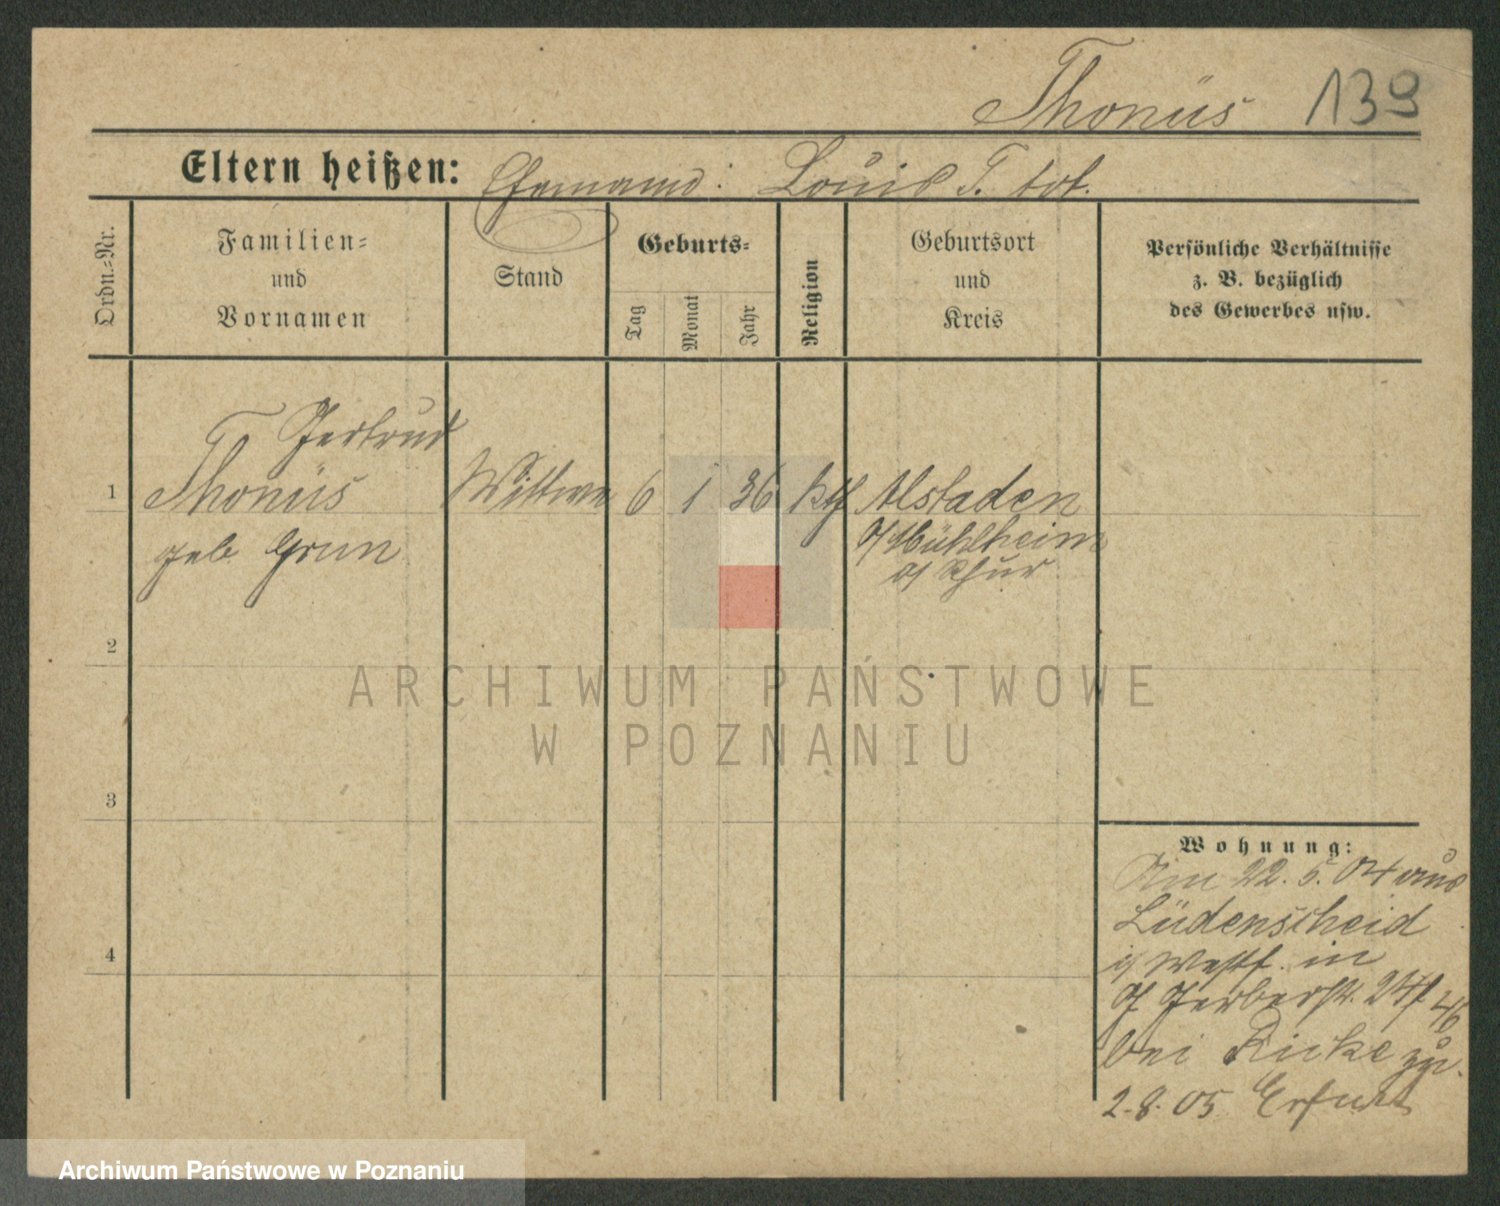 Thonüs 139
Eltern heißen: Ehemann: Louis T. tot.
Ordn.-Nr.
Familien-
und
Vornamen
Stand
Geburts-
Tag
Monat
Jahr
Religion
Geburtsort
und
Kreis
Persönliche Verhältnisse
z. B. bezüglich
des Gewerbes usw.
Gertrud
1 Thonüs Wittwe 6 1 36 kth Alstaden
geb. Grun
Mühlheim
a/ Rhur
2
3
4
Wohnung:
Am 22. 5. 04 aus
Lüdenscheid
i/ Westf. in
Gerberstr.
bei Ricke zu.
2.8.05 Erfurt
ARCHIWUM PAŃSTWOWE
W POZNANIU
Archiwum Państwowe w Poznaniu